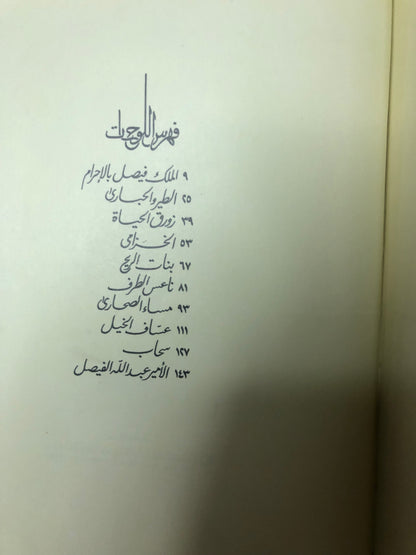 فهرس اللوحات
٩ الملك فيصل بالإحرام
٢٥ الطير والحبارى
٣٩ زورق الحياة
٥٣ الخزامى
٦٧ بنات الريح
٨١ ناعس الطرف
٩٣ مساء الصحارى
١١١ عساف الخيل
١٢٧ سحاب
١٤٣ الأمير عبد الله الفيصل